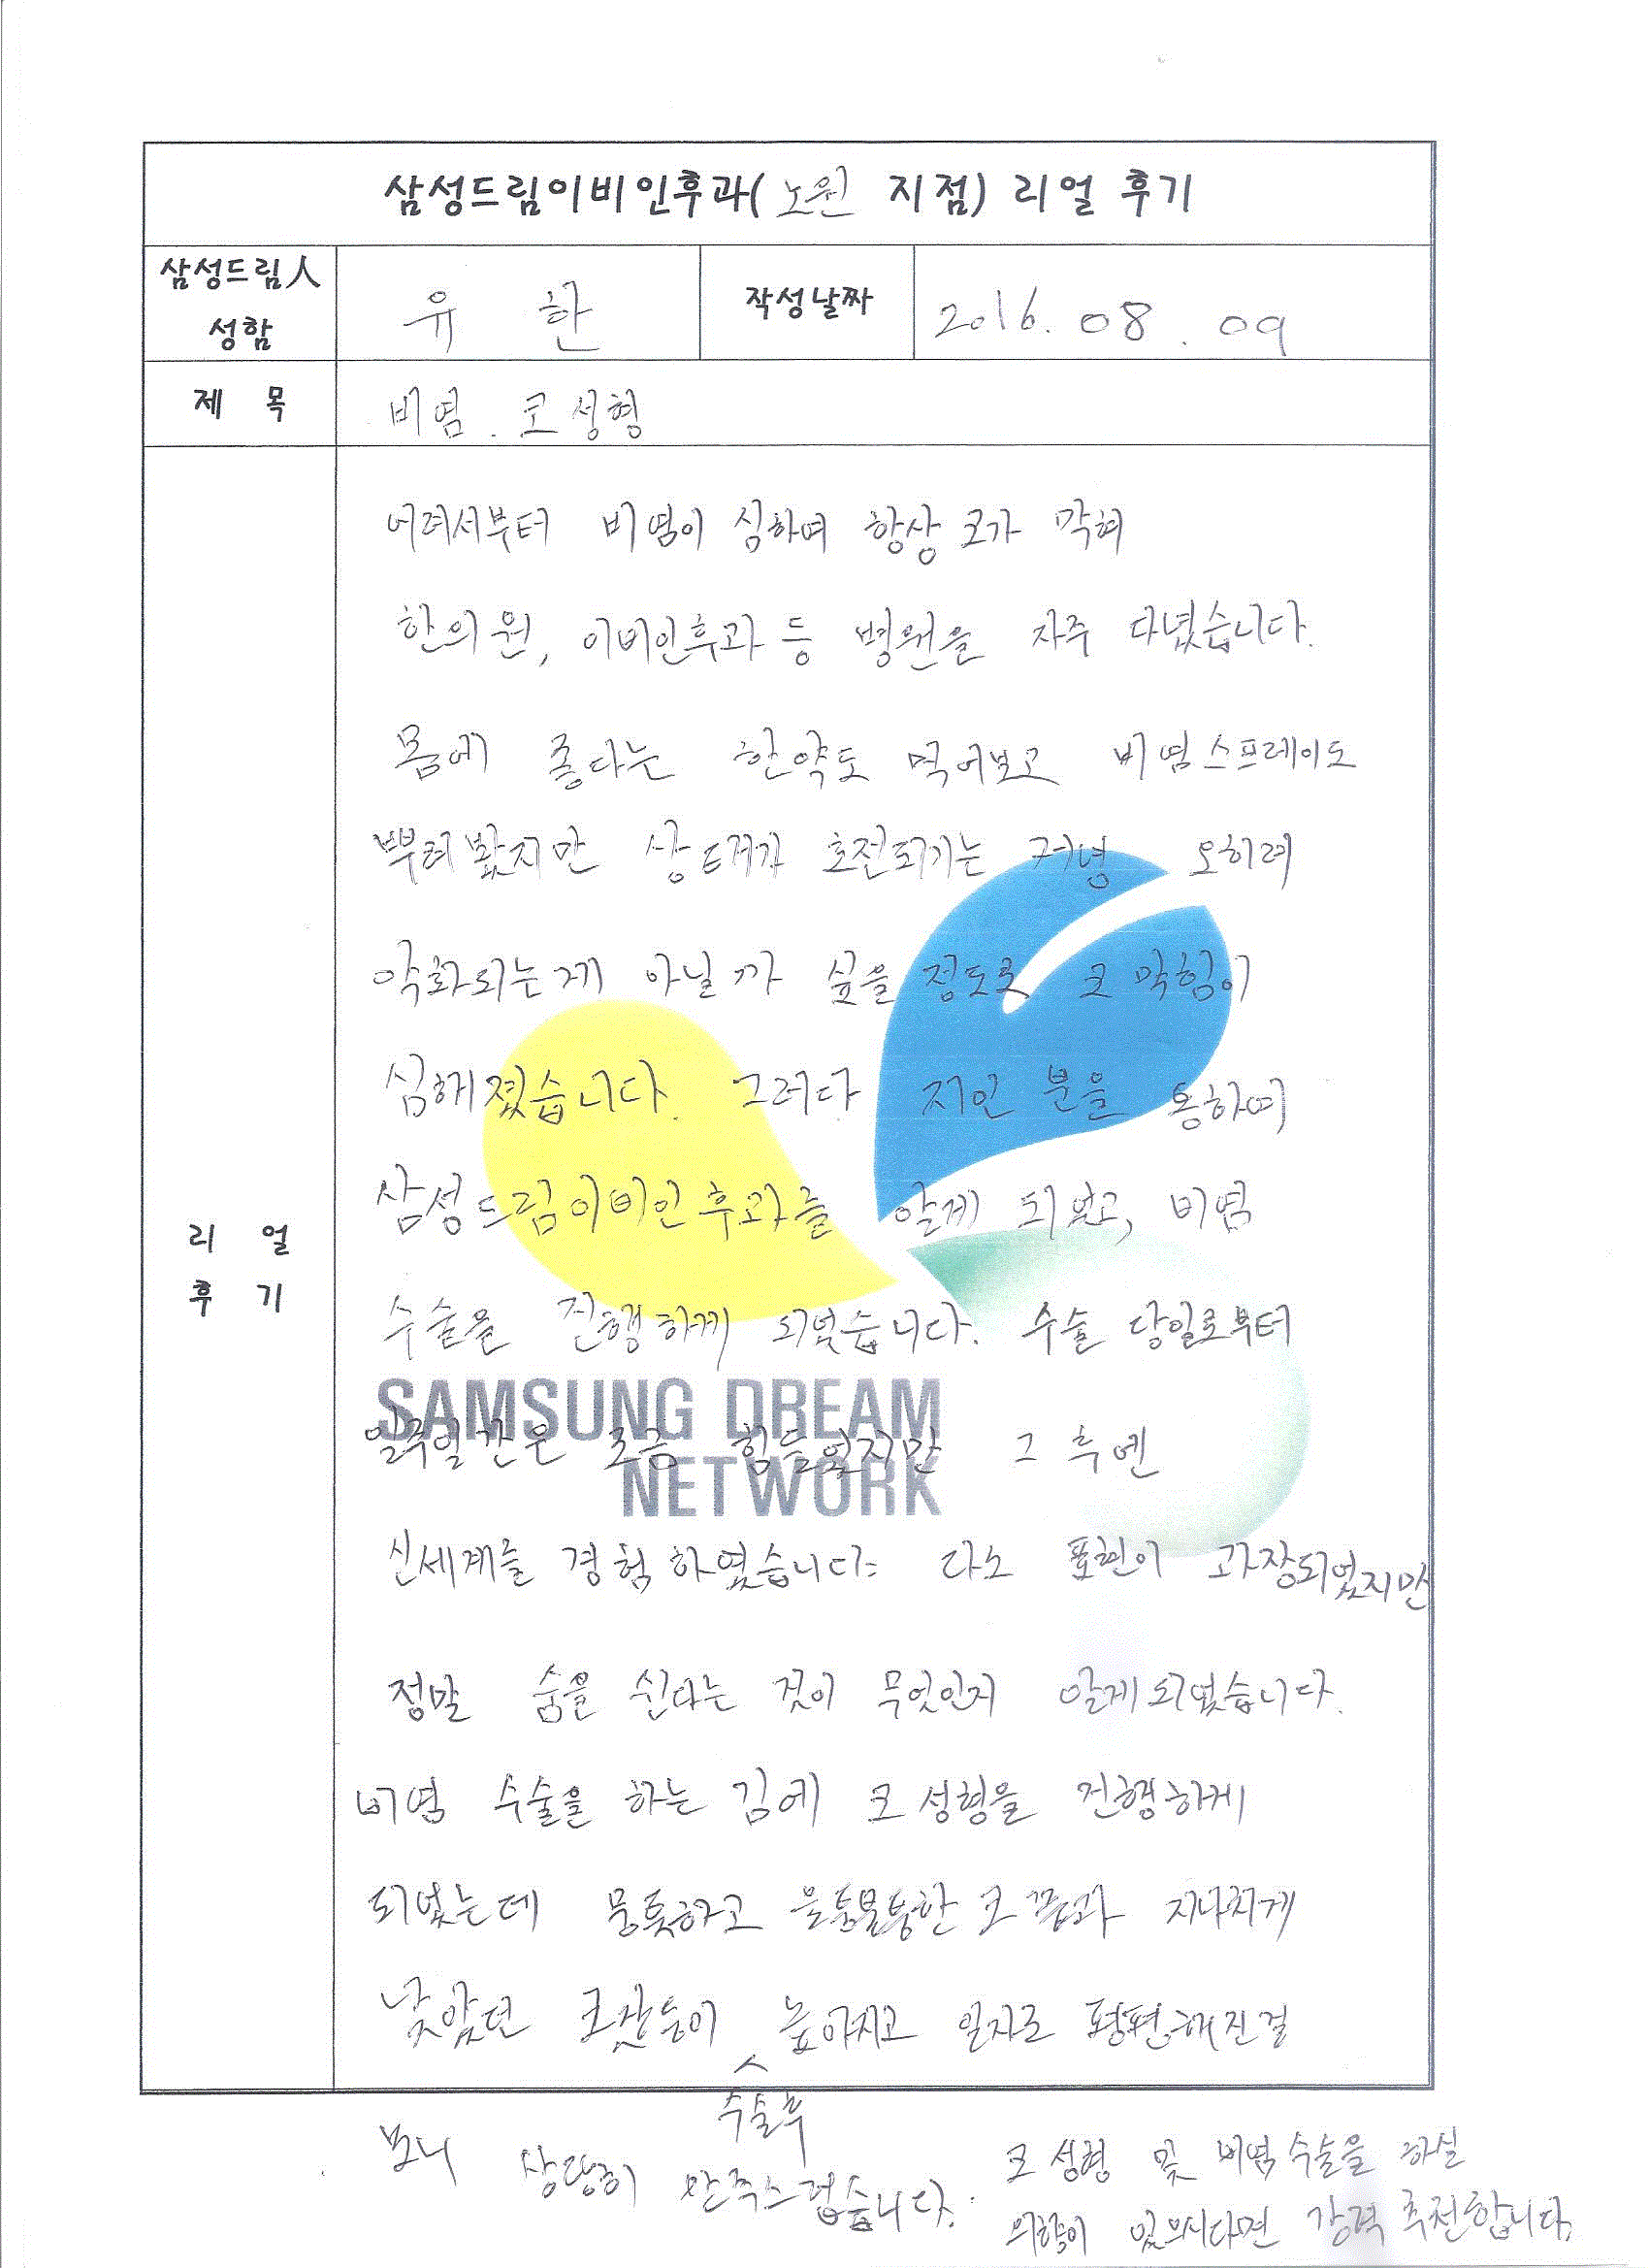 삼성드림이비인후과(노원 지점) 리얼 후기
삼성드림人 성함
유 한
작성날짜
2016. 08. 09
제 목
비염. 코성형
리 얼 후 기
어려서부터 비염이 심하여 항상 코가 막혀
한의원, 이비인후과 등 병원을 자주 다녔습니다.
몸에 좋다는 한약도 먹어보고 비염스프레이도
뿌려봤지만 상태가 호전되기는 커녕 오히려
악화되는게 아닐까 싶을 정도로 코막힘이
심해졌습니다. 그러다 지인 분을 통하여
삼성드림이비인후과를 알게 되었고, 비염
수술을 진행하게 되었습니다. 수술 당일로부터
SAMSUNG DREAM
NETWORK
일주일간은 조금 힘들었지만 그 후엔
신세계를 경험하였습니다. 다소 표현이 과장되었지만
정말 숨을 쉰다는 것이 무엇인지 알게되었습니다.
비염 수술을 하는 김에 코 성형을 진행하게
되었는데 뭉툭하고 울퉁불퉁한 코끝과 지나치게
낮았던 코잔등이 높아지고 일자로 평편해진걸
수술후
보니 상당히 만족스럽습니다.
코 성형 및 비염수술을 하실
의향이 있으시다면 강력 추천합니다.